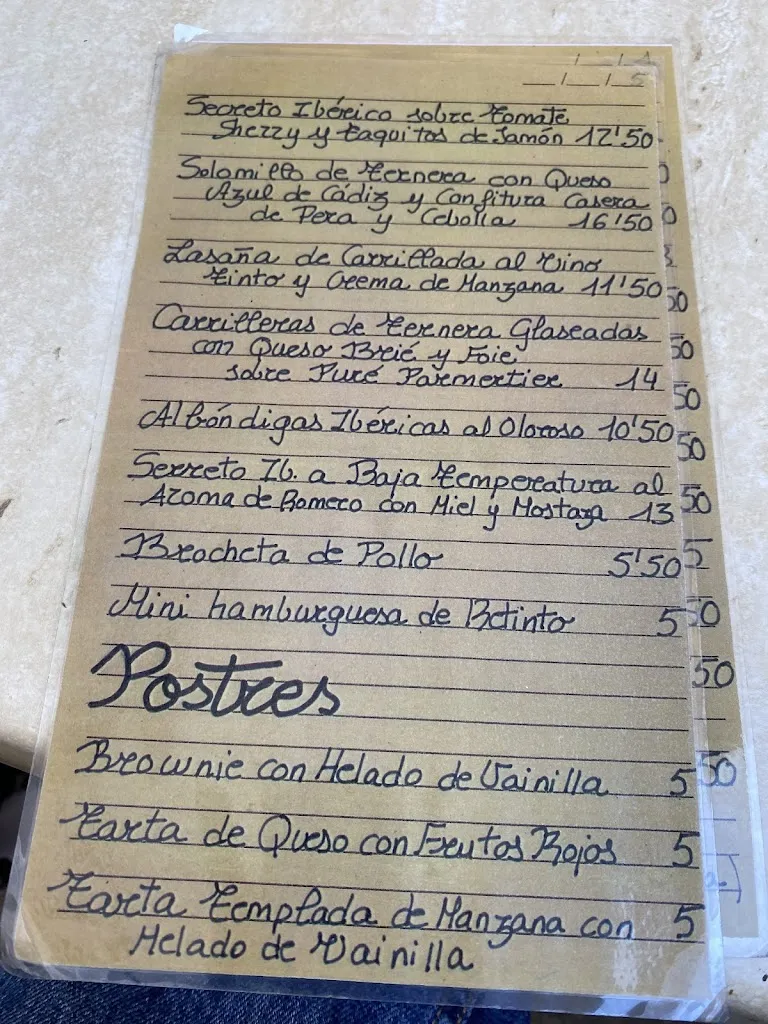 Secreto Ibérico sobre Tomate
Sherry y Taquitos de Jamón 12'50
Solomillo de Ternera con Queso
Azul de Cádiz y Confitura Casera
de Pera y Cebolla 16'50
Lasaña de Carrillada al Vino
Tinto y Crema de Manzana 11'50
Carrilleras de Ternera Glaseadas
con Queso Brié y Foie
sobre Puré Parmertier 14
Albóndigas Ibéricas al Oloroso 10'50
Serreto Ib. a Baja Temperatura al
Aroma de Romero con Miel y Mostaza 13
Brocheta de Pollo 5'50
Mini hamburguesa de Retinto 5
Postres
Brownie con Helado de Vainilla 5
Tarta de Queso con Frutos Rojos 5
Tarta Templada de Manzana con 5
Helado de Vainilla